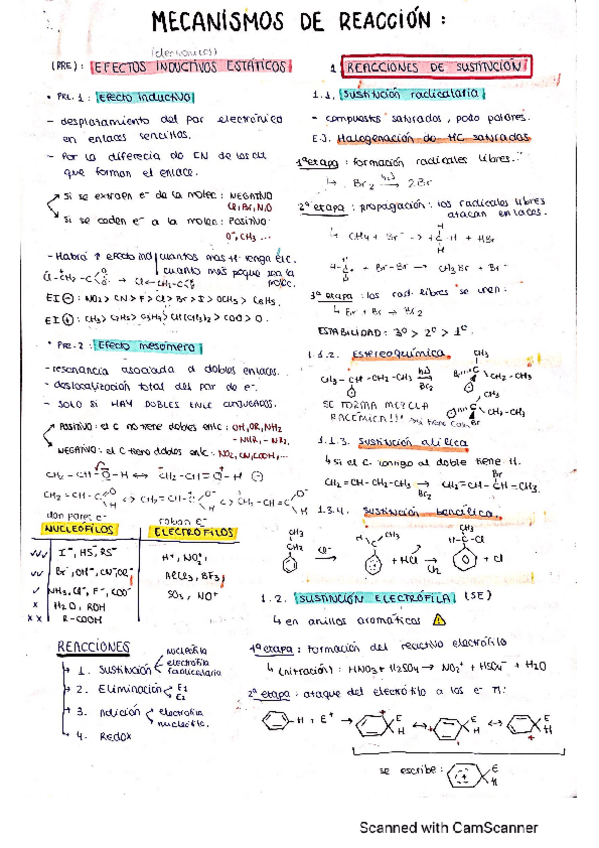 MECANISMOS DE REACCIÓN :
(electrónicos)
(PRE) : EFECTOS INDUCTIVOS ESTÁTICOS
• PRE. 1 : Efecto inductivo
- desplazamiento del par electrónico
en enlaces sencillos.
- Por la diferencia de EN de los at
que forman el enlace.
Si se extraen e⁻ de la molec : NEGATIVO
Cl, Br, N, O
Si se ceden e⁻ a la molec : POSITIVO
O⁻, CH₃ ...
- Habrá ↑ efecto ind cuantos más H tenga el C.
cuanto más peque sea la
molec.
EI ⊖ : NO₂ > CN > F > Cl > Br > I > OCH₃ > C₆H₅.
• PRE. 2 : Efecto mesómero
- resonancia asociada a dobles enlaces.
- deslocalización total del par de e⁻.
- SOLO SI HAY DOBLES ENLC CONJUGADOS.
POSITIVO : el C no tiene dobles enlc : OH, OR, NH₂
NEGATIVO : el C tiene dobles enlc : NO₂, CN, COOH, ...
CH₂ = CH - O - H ↔ CH₂ - CH = O - H
dan pares e⁻
roban e⁻
NUCLEÓFILOS
ELECTRÓFILOS
✓✓✓ I⁻, HS, RS⁻
H⁺, NO₂⁺,
✓✓ Br⁻, OH⁻, CN⁻, OR⁻
AlCl₃, BF₃,
✓ NH₃, Cl⁻, F⁻, COO⁻
SO₃, NO⁺
x H₂O, ROH
x x R-COOH
REACCIONES
1. Sustitución
nucleófila
electrófila
radicalaria
2. Eliminación
E1
E2
3. Adición
electrófila
nucleófila.
4. REDOX
1 REACCIONES DE SUSTITUCIÓN
1.1. Sustitución radicalaria
- compuestos saturados, poco polares.
EJ. Halogenación de HC saturados
1ª etapa : formación radicales libres.
Br₂ → 2Br
2ª etapa : propagación : los radicales libres
atacan enlaces.
3ª etapa : los rad. libres se unen :
Br + Br → Br₂
ESTABILIDAD : 3º > 2º > 1º.
Estereoquímica.
CH₃
CH₃ - CH - CH₂ - CH₃
Br₂
CH₂ - CH₃
CH₃
SE FORMA MEZCLA
RACÉMICA !!!
1.1.3. Sustitución alílica
si el C contiguo al doble tiene H.
CH₂ = CH - CH₂ - CH₃ → CH₂ = CH - CH - CH₃.
Br
1.1.4. Sustitución bencílica.
CH₃
CH₂
+ HCl
Cl₂
CH₃
H - C - Cl
1.2. SUSTITUCIÓN ELECTRÓFILA (SE)
en anillos aromáticos
1ª etapa : formación del reactivo electrófilo
(nitración) : HNO₃ + H₂SO₄ → NO₂⁺ + HSO₄⁻ + H₂O
2ª etapa : ataque del electrófilo a los e⁻ π :
- H + E⁺ →
E
H
E
H
E
H
se escribe :
E
H
Scanned with CamScanner